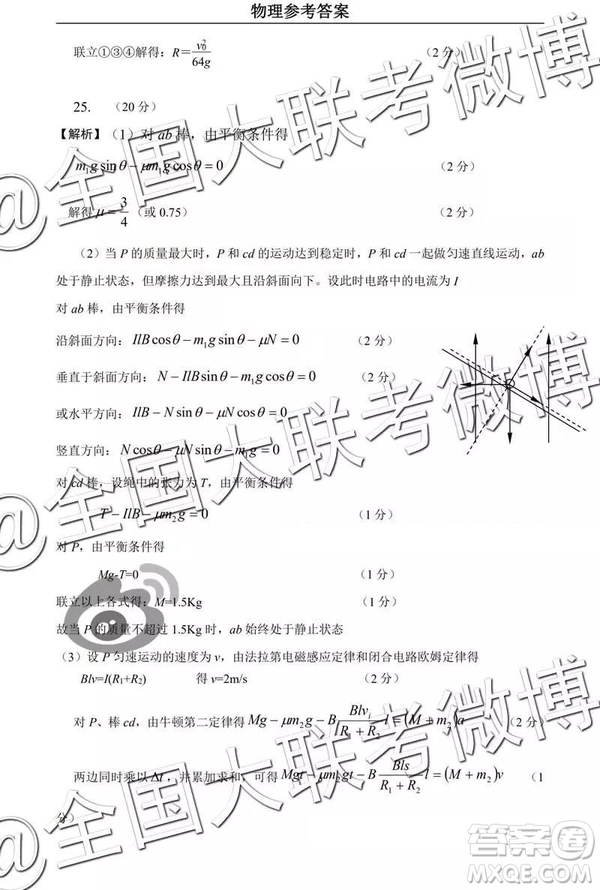 物理参考答案
联立①③④解得：R＝v₀²/64g （2 分）
25. （20 分）
【解析】（1）对 ab 棒，由平衡条件得
m₁g sinθ－μm₁g cosθ＝0 （2 分）
解得 μ＝3/4（或 0.75） （2 分）
（2）当 P 的质量最大时，P 和 cd 的运动达到稳定时，P 和 cd 一起做匀速直线运动，ab
处于静止状态，但摩擦力达到最大且沿斜面向下。设此时电路中的电流为 I
对 ab 棒，由平衡条件得
沿斜面方向：IlBcosθ－m₁g sinθ－μN＝0 （2 分）
垂直于斜面方向：N－IlBsinθ－m₁g cosθ＝0 （2 分）
或水平方向：IlB－N sinθ－μN cosθ＝0
竖直方向：N cosθ－μN sinθ－m₁g＝0
对 cd 棒，设绳中的张力为 T，由平衡条件得
T－IlB－μm₂g＝0 （1 分）
对 P，由平衡条件得
Mg-T=0 （1 分）
联立以上各式得：M=1.5Kg （1 分）
故当 P 的质量不超过 1.5Kg 时，ab 始终处于静止状态
（3）设 P 匀速运动的速度为 v，由法拉第电磁感应定律和闭合电路欧姆定律得
Blv=I(R₁+R₂) 得 v=2m/s （2 分）
对 P、棒 cd，由牛顿第二定律得 Mg－μm₂g－B Blvᵢ/(R₁＋R₂) l＝(M＋m₂)a （2 分）
两边同时乘以 Δt，并累加求和，可得 Mgt－μm₂gt－B Bls/(R₁＋R₂) l＝(M＋m₂)v （1
分）
@全国大联考微博
@全国大联考微博
@全国大联考微博
答案圈
MXQE.COM